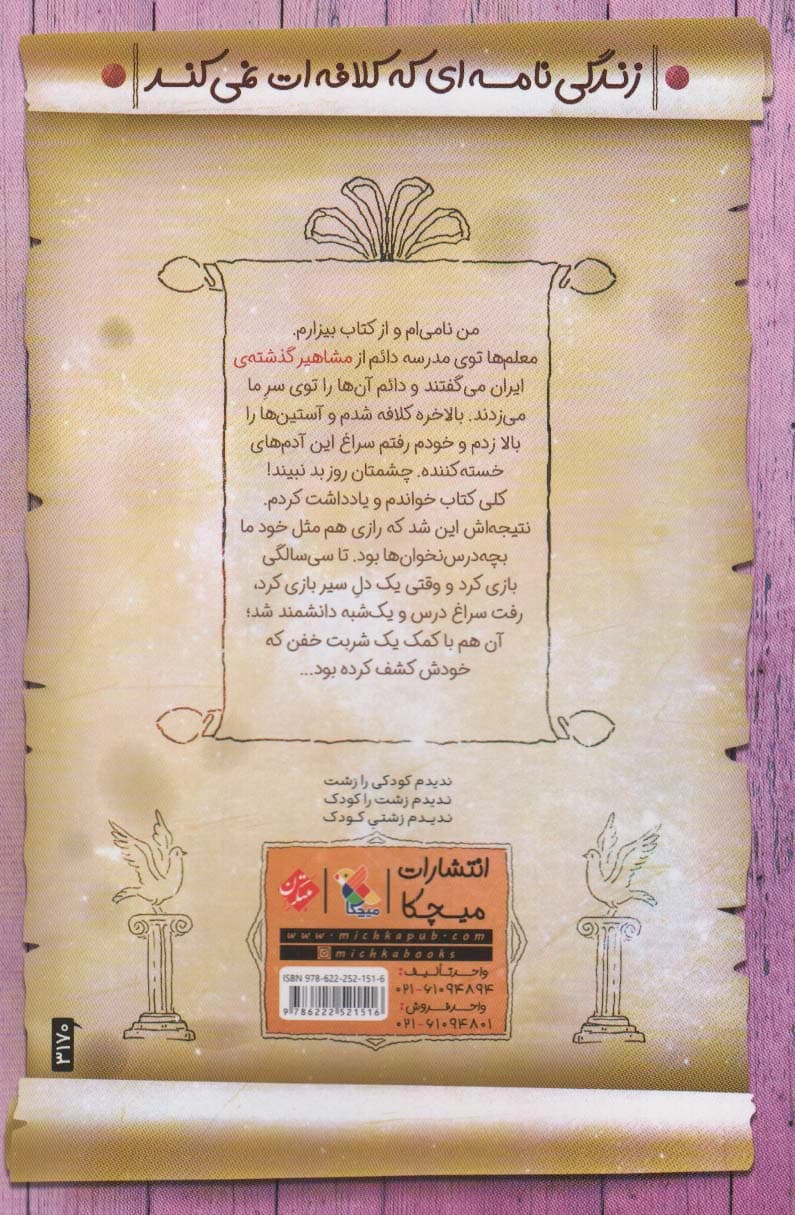 زندگی نامه ای که کلافه ات نمی کند
من نامی‌ام و از کتاب بیزارم.
معلم‌ها توی مدرسه دائم از مشاهیر گذشته‌ی
ایران می‌گفتند و دائم آن‌ها را توی سرِ ما
می‌زدند. بالاخره کلافه شدم و آستین‌ها را
بالا زدم و خودم رفتم سراغ این آدم‌های
خسته‌کننده. چشمتان روز بد نبیند!
کلی کتاب خواندم و یادداشت کردم.
نتیجه‌اش این شد که رازی هم مثل خود ما
بچه‌درس‌نخوان‌ها بود. تا سی‌سالگی
بازی کرد و وقتی یک دلِ سیر بازی کرد،
رفت سراغ درس و یک‌شبه دانشمند شد؛
آن هم با کمک یک شربت خفن که
خودش کشف کرده بود...
ندیدم کودکی را زشت
ندیدم زشت را کودک
ندیدم زشتیِ کودک
انتشارات
میچکا
میچکا
مبتکران
www.michkapub.com
michkabooks
واحد تألیف:
۰۲۱-۶۱۰۹۴۸۹۴
واحد فروش:
۰۲۱-۶۱۰۹۴۸۰۱
ISBN 978-622-252-151-6
9 786222 521516
۳۱۷۰